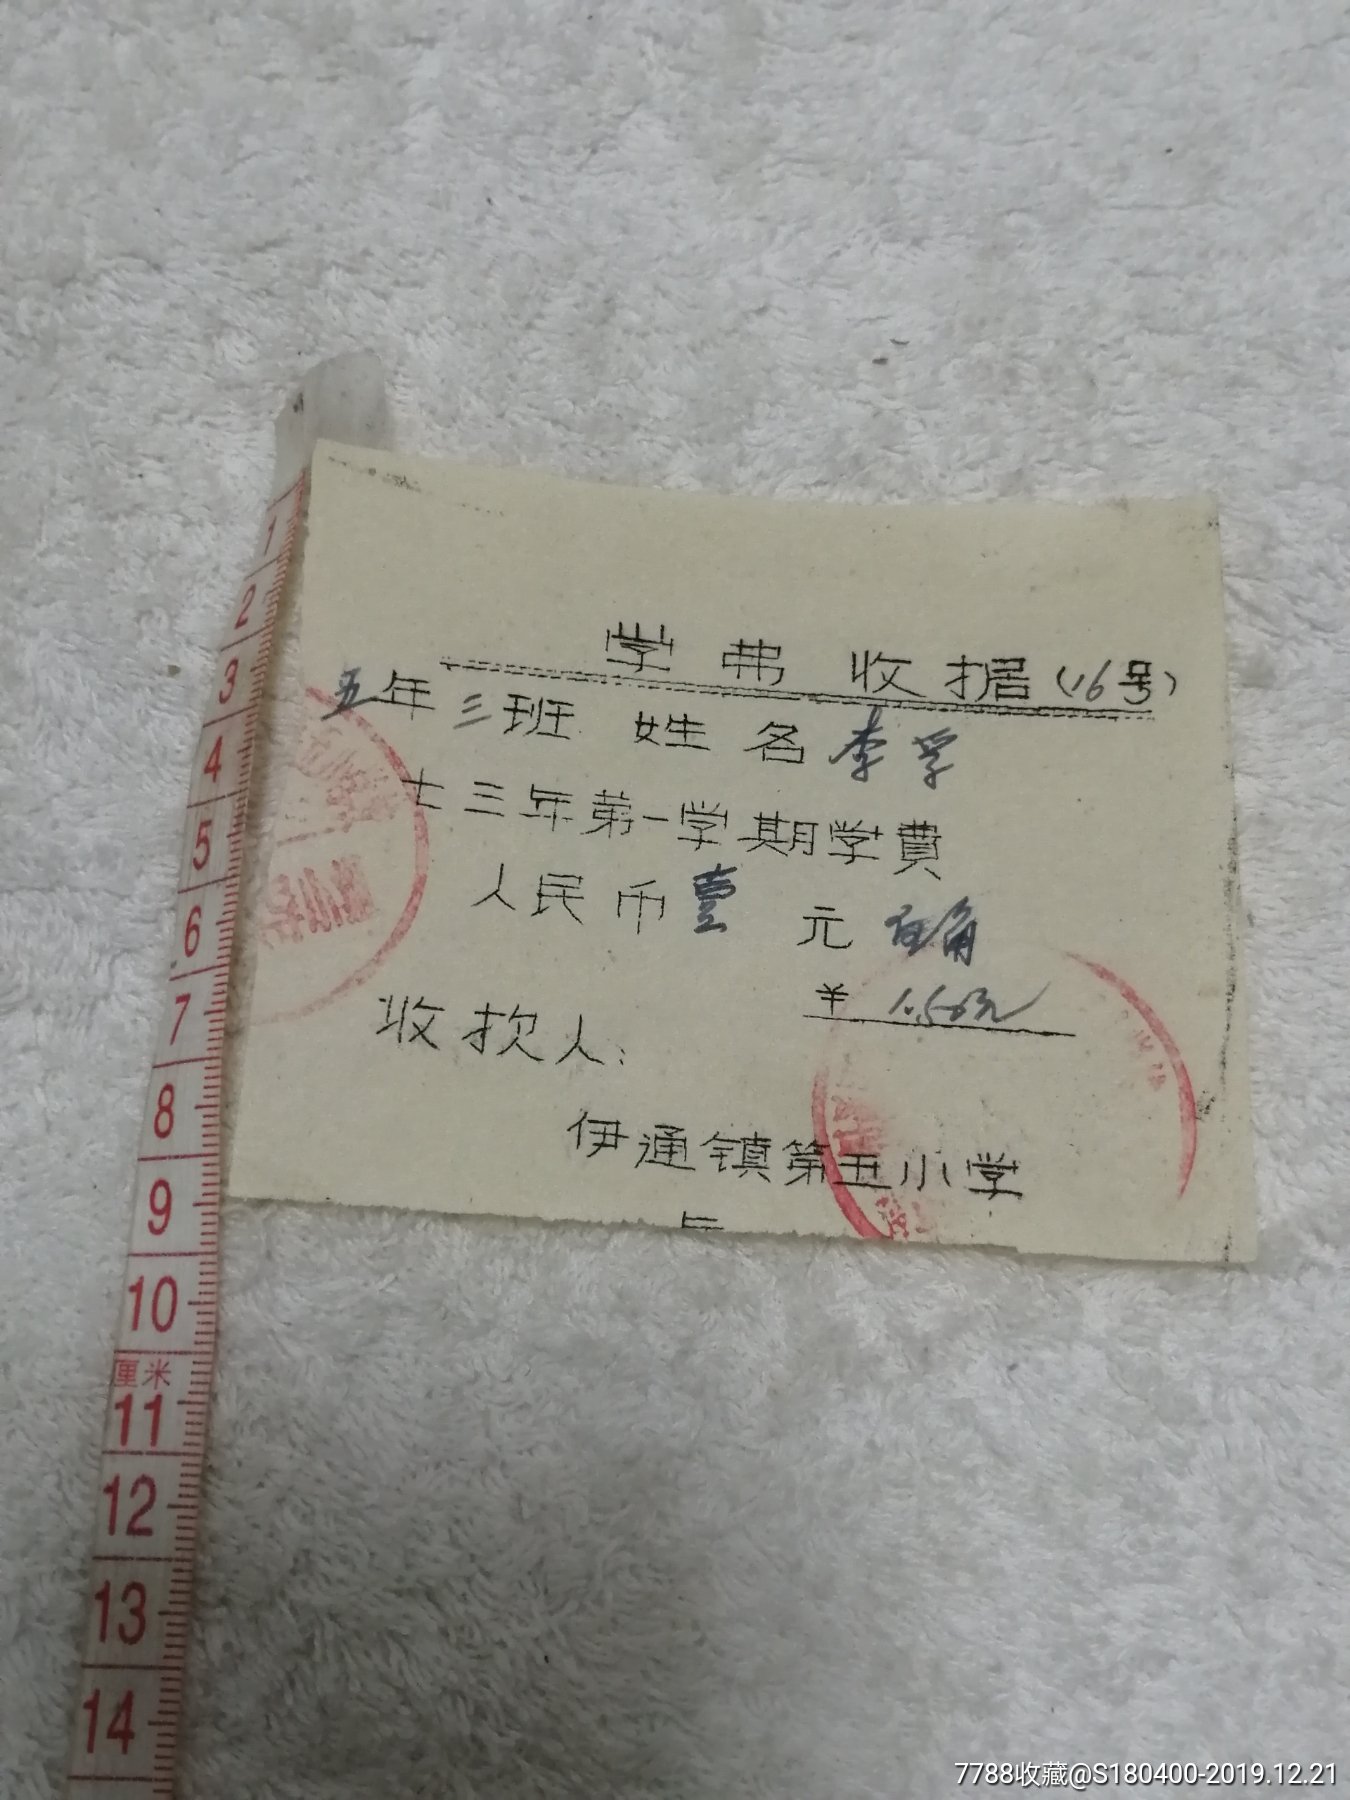 学弗收据(16号)
五年三班 姓名李学
七三年第一学期学費
人民币壹元伍角
¥1.50元
收款人:
伊通镇第五小学
1
2
3
4
5
6
7
8
9
10
厘米
11
12
13
14
7788收藏@S180400-2019.12.21